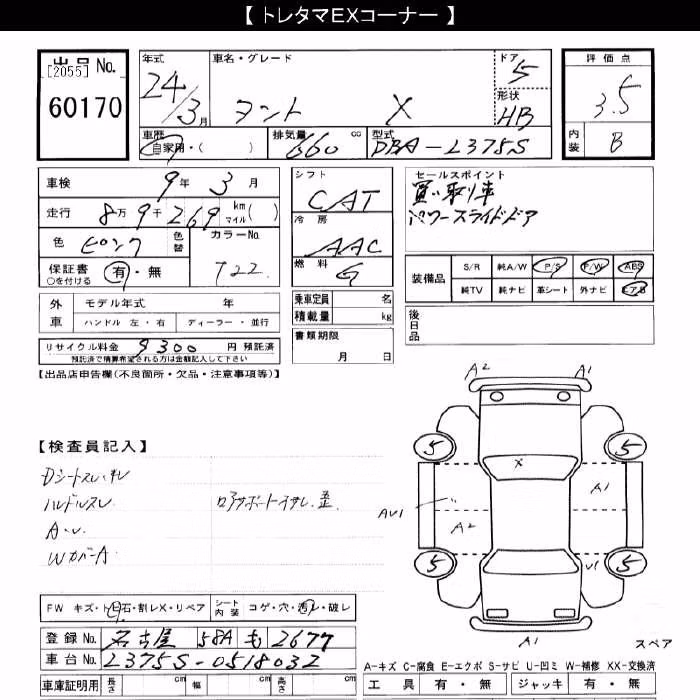 【 トレタマEXコーナー 】
出品 No.
[2055]
60170
年式
24/3月
車名・グレード
タント X
ドア
5
形状
HB
評価点
3.5
内装
B
車歴
自家用・( )
排気量 cc
660
型式
DBA-L375S
車検 9年 3月
走行 8万 9千 269 km マイル( )
色 ピンク
色替
カラーNo.
T22
保証書 有・無
○を付ける
シフト
CAT
冷房
AAC
燃料
G
セールスポイント
買い取り車
パワースライドドア
装備品
S/R 純A/W P/S P/W ABS
純TV 純ナビ 革シート 外ナビ エアB
外車
モデル年式 年
ハンドル 左・右 ディーラー・並行
乗車定員 名
積載量 kg
後日品
リサイクル料金 9300 円 預託済
預託済で精算希望される方は金額記入して下さい
書類期限
月 日
【出品店申告欄(不良箇所・欠品・注意事項等)】
A2 A1
【検査員記入】
5 5
Dシートスレ・キレ
ハンドルスレ
A・U
WカバーA
X
A1
AU1
A2
U1
5 5
FW キズ・トビ石・割レX・リペア
シート内装 コゲ・穴・汚レ・破レ
登録 No. 名古屋 58A も 2677
車台 No. L375S-0518032
A1
スペア
A-キズ C-腐食 E-エクボ S-サビ U-凹ミ W-補修 XX-交換済
車庫証明用 長さ cm 幅 cm 高さ cm
工具 有・無 ジャッキ 有・無